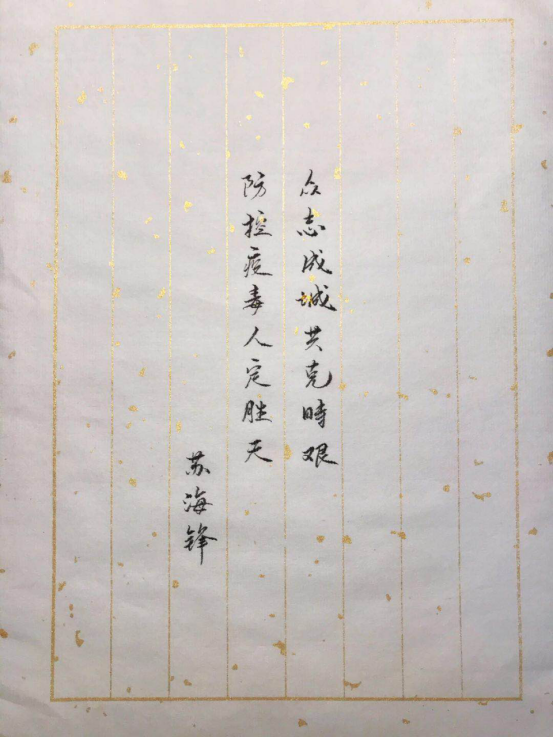 众志成城共克時艰
防控疫毒人定胜天
苏海锋